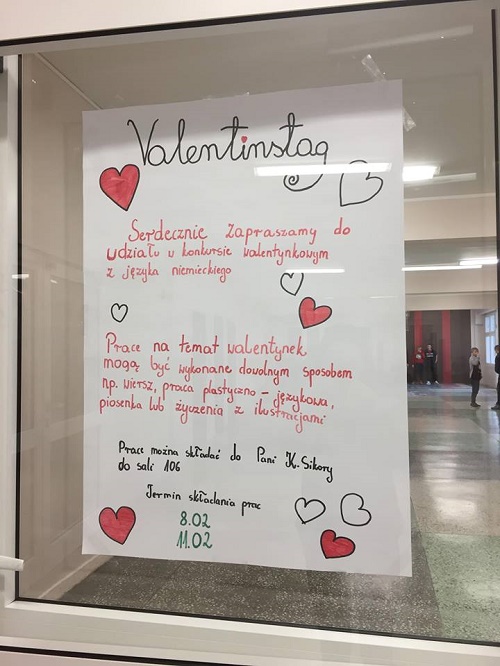 Valentinstag
Serdecznie zapraszamy do
udziału w konkursie walentynkowym
z języka niemieckiego
Prace na temat walentynek
mogą być wykonane dowolnym sposobem
np. wiersz, praca plastyczno - językowa,
piosenka lub życzenia z ilustracjami
Prace można składać do Pani K. Sikory
do sali 106
Termin składania prac
8.02
11.02